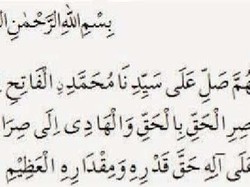 بِسْمِ اللهِ الرَّحْمٰنِ ال
هُمَّ صَلِّ عَلَى سَيِّدِنَا مُحَمَّدِنِ الْفَاتِحِ
صِرِ الْحَقِّ بِالْحَقِّ وَالْهَادِى اِلَى صِرَا
عَلَى آلِهِ حَقَّ قَدْرِهِ وَمِقْدَارِهِ الْعَظِيْمِ